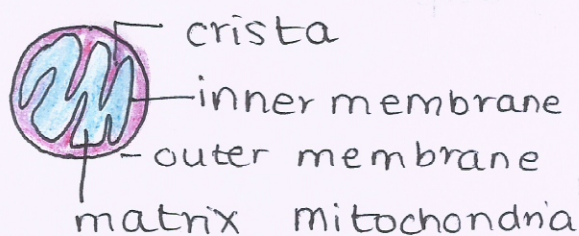 crista
inner membrane
outer membrane
matrix mitochondria